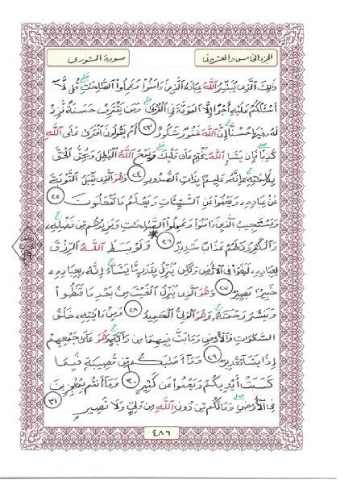 الجزء الخامس والعشرون سورة الشورى
ذَٰلِكَ الَّذِي يُبَشِّرُ اللَّهُ عِبَادَهُ الَّذِينَ ءَامَنُوا وَعَمِلُوا الصَّالِحَاتِ قُل لَّا
أَسْأَلُكُمْ عَلَيْهِ أَجْرًا إِلَّا الْمَوَدَّةَ فِي الْقُرْبَىٰ وَمَن يَقْتَرِفْ حَسَنَةً نَّزِدْ
لَهُ فِيهَا حُسْنًا إِنَّ اللَّهَ غَفُورٌ شَكُورٌ ٢٣ أَمْ يَقُولُونَ افْتَرَىٰ عَلَى اللَّهِ
كَذِبًا فَإِن يَشَإِ اللَّهُ يَخْتِمْ عَلَىٰ قَلْبِكَ وَيَمْحُ اللَّهُ الْبَاطِلَ وَيُحِقُّ الْحَقَّ
بِكَلِمَاتِهِ إِنَّهُ عَلِيمٌ بِذَاتِ الصُّدُورِ ٢٤ وَهُوَ الَّذِي يَقْبَلُ التَّوْبَةَ
عَنْ عِبَادِهِ وَيَعْفُوا عَنِ السَّيِّئَاتِ وَيَعْلَمُ مَا تَفْعَلُونَ ٢٥
وَيَسْتَجِيبُ الَّذِينَ ءَامَنُوا وَعَمِلُوا الصَّالِحَاتِ وَيَزِيدُهُم مِّن فَضْلِهِ
وَالْكَافِرُونَ لَهُمْ عَذَابٌ شَدِيدٌ ٢٦ وَلَوْ بَسَطَ اللَّهُ الرِّزْقَ
لِعِبَادِهِ لَبَغَوْا فِي الْأَرْضِ وَلَٰكِن يُنَزِّلُ بِقَدَرٍ مَّا يَشَاءُ إِنَّهُ بِعِبَادِهِ
خَبِيرٌ بَصِيرٌ ٢٧ وَهُوَ الَّذِي يُنَزِّلُ الْغَيْثَ مِن بَعْدِ مَا قَنَطُوا
وَيَنشُرُ رَحْمَتَهُ وَهُوَ الْوَلِيُّ الْحَمِيدُ ٢٨ وَمِنْ ءَايَاتِهِ خَلْقُ
السَّمَاوَاتِ وَالْأَرْضِ وَمَا بَثَّ فِيهِمَا مِن دَابَّةٍ وَهُوَ عَلَىٰ جَمْعِهِمْ
إِذَا يَشَاءُ قَدِيرٌ ٢٩ وَمَا أَصَابَكُم مِّن مُّصِيبَةٍ فَبِمَا
كَسَبَتْ أَيْدِيكُمْ وَيَعْفُوا عَن كَثِيرٍ ٣٠ وَمَا أَنتُم بِمُعْجِزِينَ
فِي الْأَرْضِ وَمَا لَكُم مِّن دُونِ اللَّهِ مِن وَلِيٍّ وَلَا نَصِيرٍ ٣١
٤٨٦